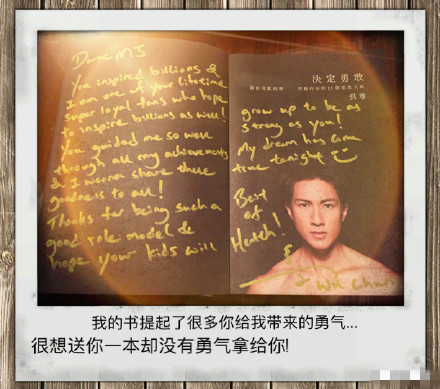 Dear MJ
You inspired billions &
I am one of your lifetime
super loyal fans who hope
to inspire billions as well!
You guided me so well
through all my achievements
& I wanna share these
goodness to all!
Thanks for being such a
good role model &
hope your kids will
決定勇敢
吳尊
grow up to be as
strong as you!
My dream has come
true tonight
Best
of
Health!
Wu Chun
我的书提起了很多你给我带来的勇气...
很想送你一本却没有勇气拿给你!